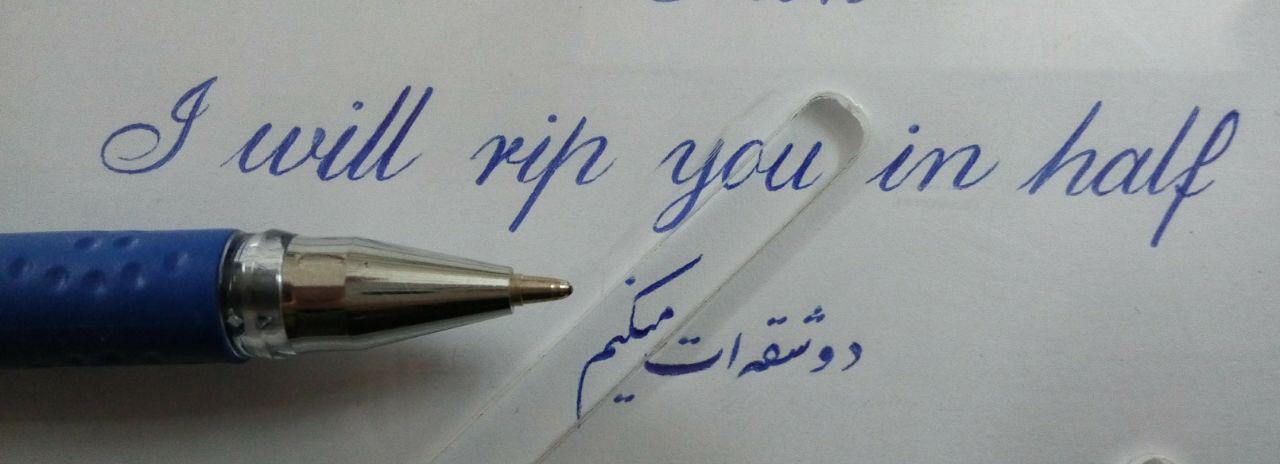 I will rip you in half
دو شقه ات میکنیم